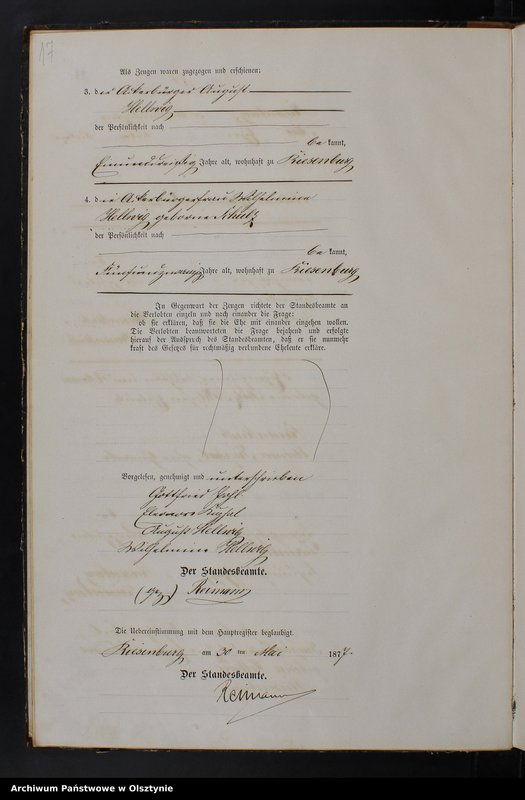 17
Als Zeugen waren zugezogen und erschienen:
3. der Ackerbürger August
Hellwig
der Persönlichkeit nach
be kannt,
Einunddreißig Jahre alt, wohnhaft zu Riesenburg
4. die Ackerbürgerfrau Wilhelmine
Hellwig geborne Schulz
der Persönlichkeit nach
be kannt,
Fünfundzwanzig Jahre alt, wohnhaft zu Riesenburg
In Gegenwart der Zeugen richtete der Standesbeamte an
die Verlobten einzeln und nach einander die Frage:
ob sie erklären, daß sie die Ehe mit einander eingehen wollen.
Die Verlobten beantworteten die Frage bejahend und erfolgte
hierauf der Ausspruch des Standesbeamten, daß er sie nunmehr
kraft des Gesetzes für rechtmäßig verbundene Eheleute erkläre.
Vorgelesen, genehmigt und unterschrieben
Gottfried
August Hellwig
Wilhelmine Hellwig
Der Standesbeamte.
(gez) Reimann
Die Uebereinstimmung mit dem Hauptregister beglaubigt.
Riesenburg am 30 ten Mai 1877.
Der Standesbeamte.
Reimann
Archiwum Państwowe w Olsztynie